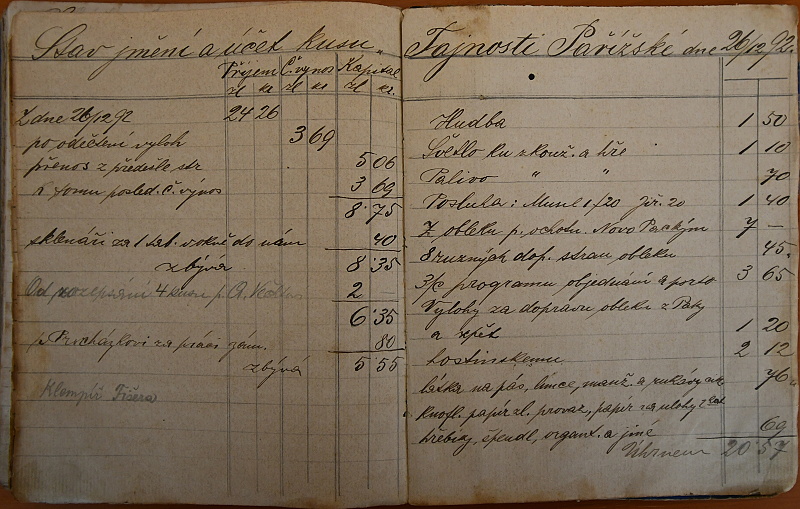 Stav jmění a účet kusu „
Příjem Č. výnos Kapitál
zl kr zl kr zl kr.
Z dne 26/12 92 24 26
po odečtení výloh 3 69
přenos z předešlé str 5 06
k tomu posled. č. výnos 3 69
8·75
sklenáři za 1 tab. v okně do rámu 40
zbývá 8·35
Od rozepsání 4 kusu p. 2 —
6·35
p. Procházkovi za práci zám. 80
zbývá 5 55
Klempíř Fišera
Tajnosti Pařížské dne 26/12 92.
Hudba 1 50
Světlo ku zkouš. a hře 1 10
Palivo " " 70
Posluha: Munl 1/20 Jir. 20 1 40
Z obleku p. ochotn. Novo Packým 7 —
8 ruzných dop. stran obleku 45.
3/c programu objednání a porto 3 65
Vylohy za dopravu obleku z Paky
a zpět 1 20
hostinskému 2 12
látka na pás, límce, manž. a rukávy 76
Knofl. papír zl. provaz, papír na ulohy
hřebíky, špendl, organt. a jiné 69
Úhrnem 20·57